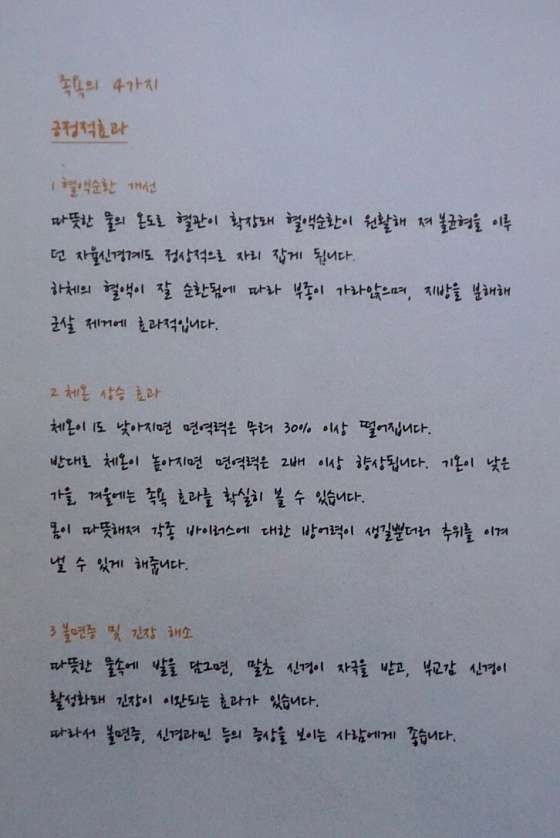 족욕의 4가지
긍정적효과
1 혈액순환 개선
따뜻한 물의 온도로 혈관이 확장돼 혈액순환이 원활해 져 불균형을 이루
던 자율신경계도 정상적으로 자리 잡게 됩니다.
하체의 혈액이 잘 순환됨에 따라 부종이 가라앉으며, 지방을 분해해
군살 제거에 효과적입니다.
2 체온 상승 효과
체온이 1도 낮아지면 면역력은 무려 30% 이상 떨어집니다.
반대로 체온이 높아지면 면역력은 2배 이상 향상됩니다. 기온이 낮은
가을, 겨울에는 족욕 효과를 확실히 볼 수 있습니다.
몸이 따뜻해져 각종 바이러스에 대한 방어력이 생길뿐더러 추위를 이겨
낼 수 있게 해줍니다.
3 불면증 및 긴장 해소
따뜻한 물속에 발을 담그면, 말초 신경이 자극을 받고, 부교감 신경이
활성화돼 긴장이 이완되는 효과가 있습니다.
따라서 불면증, 신경과민 등의 증상을 보이는 사람에게 좋습니다.